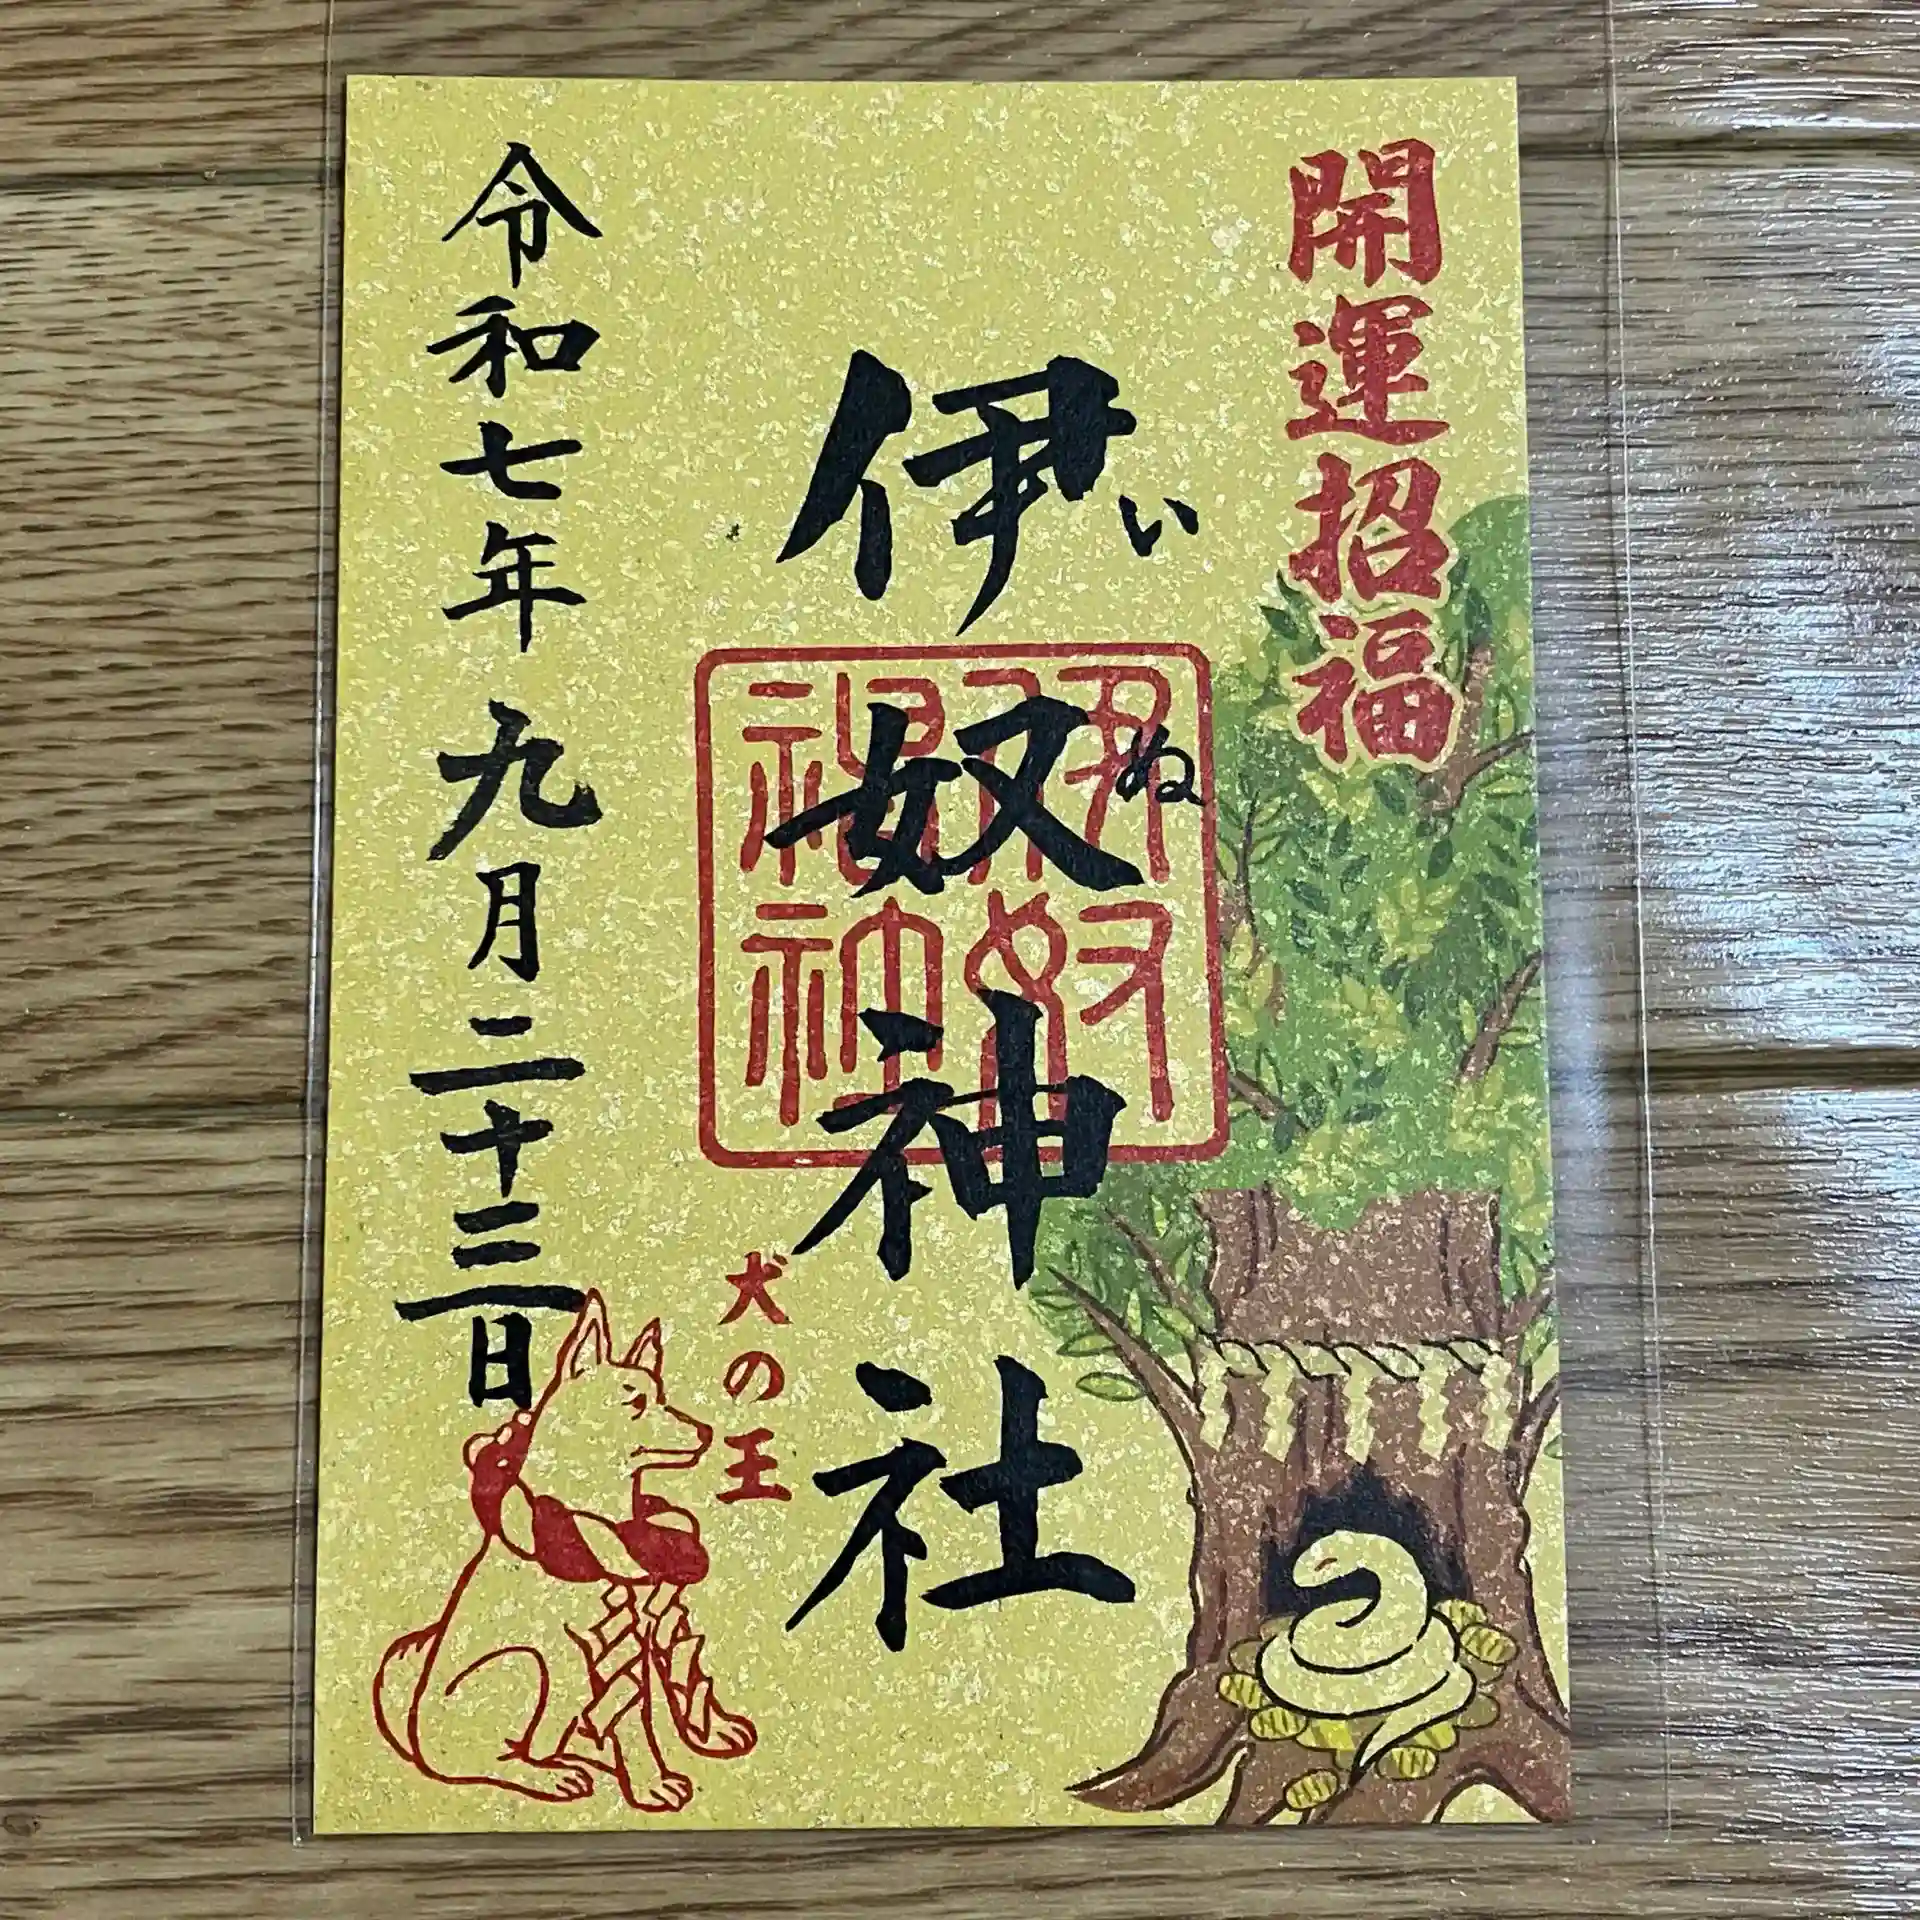 開運招福
伊奴神社
いぬ
伊奴神社
犬の王
令和七年九月二十三日